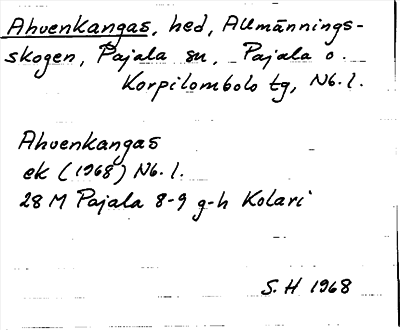 Ahvenkangas, hed, Allmännings-
skogen, Pajala sn, Pajala o.
Korpilombolo tg, Nb. l.
Ahvenkangas
ek (1968) Nb. l.
28 M Pajala 8-9 g-h Kolari
S. H 1968